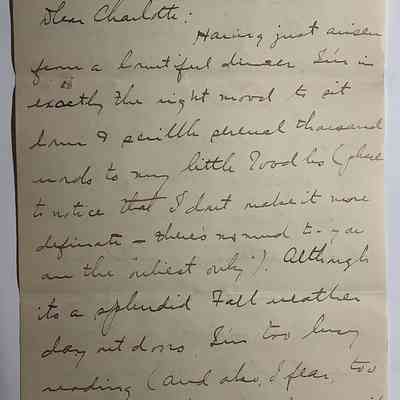 Dear Charlotte:
Having just arisen
from a bountiful dinner, I'm in
exactly the right mood to sit
down & scribble several thousand
words to my little Toodles (please
to notice that I don't make it more
definate - there's no need to - you
are the "onliest only"). Although
its a splendid Fall weather
day out doors, I'm too busy
reading (and also, I fear, too